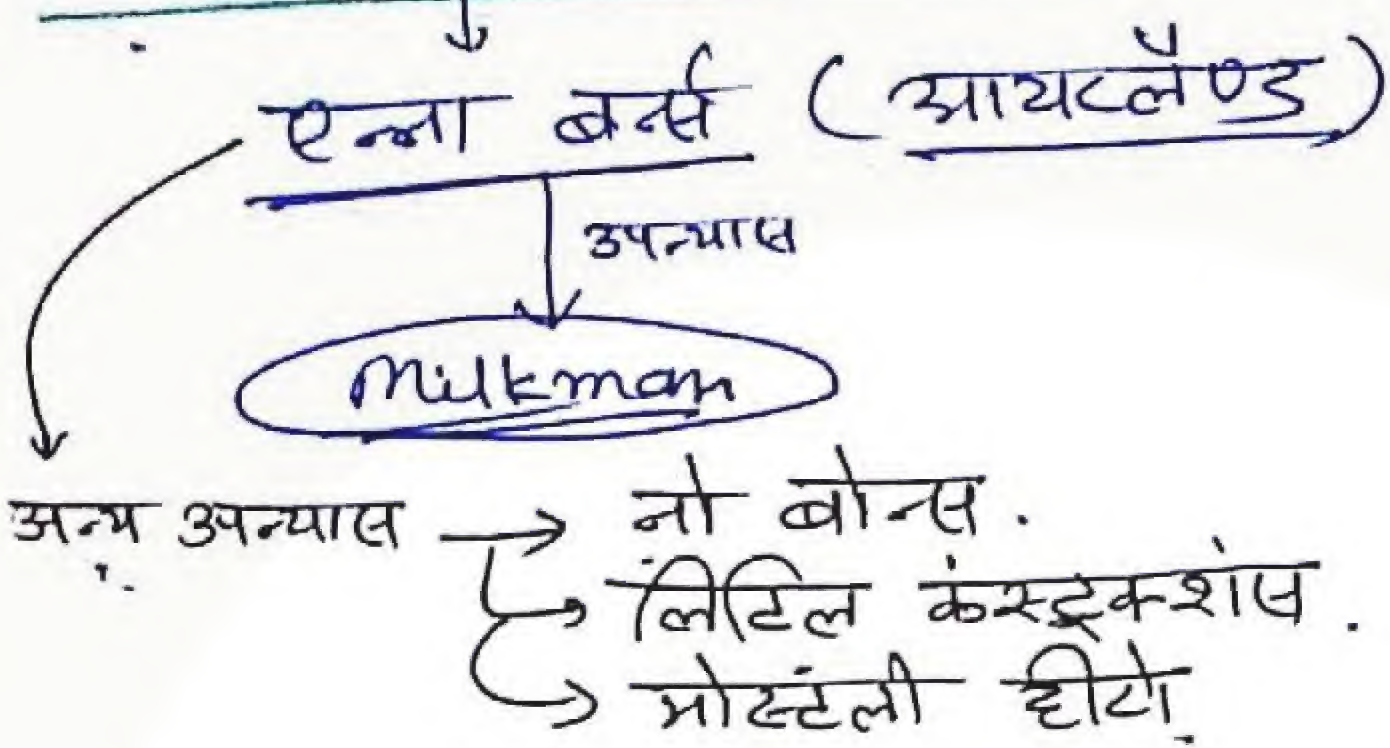 एन्ना बर्न्स (आयरलैण्ड)
उपन्यास
Milkman
अन्य उपन्यास → नो बोन्स.
लिटिल कंस्ट्रक्शंस.
मोस्टली हीरो